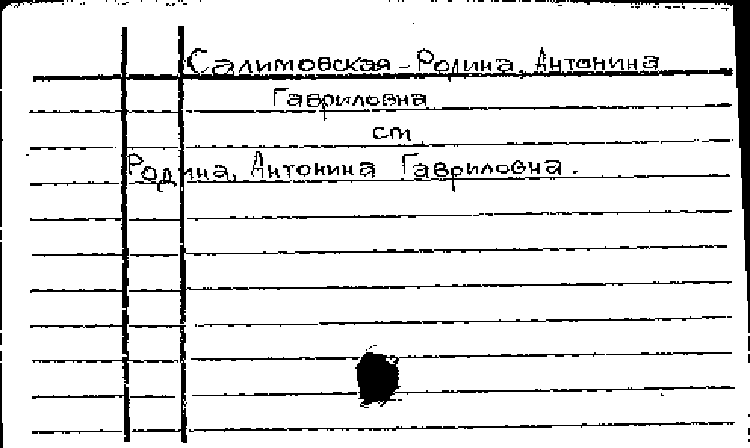 Салимовская-Родина, Антонина
Гавриловна
см
Родина, Антонина Гавриловна.